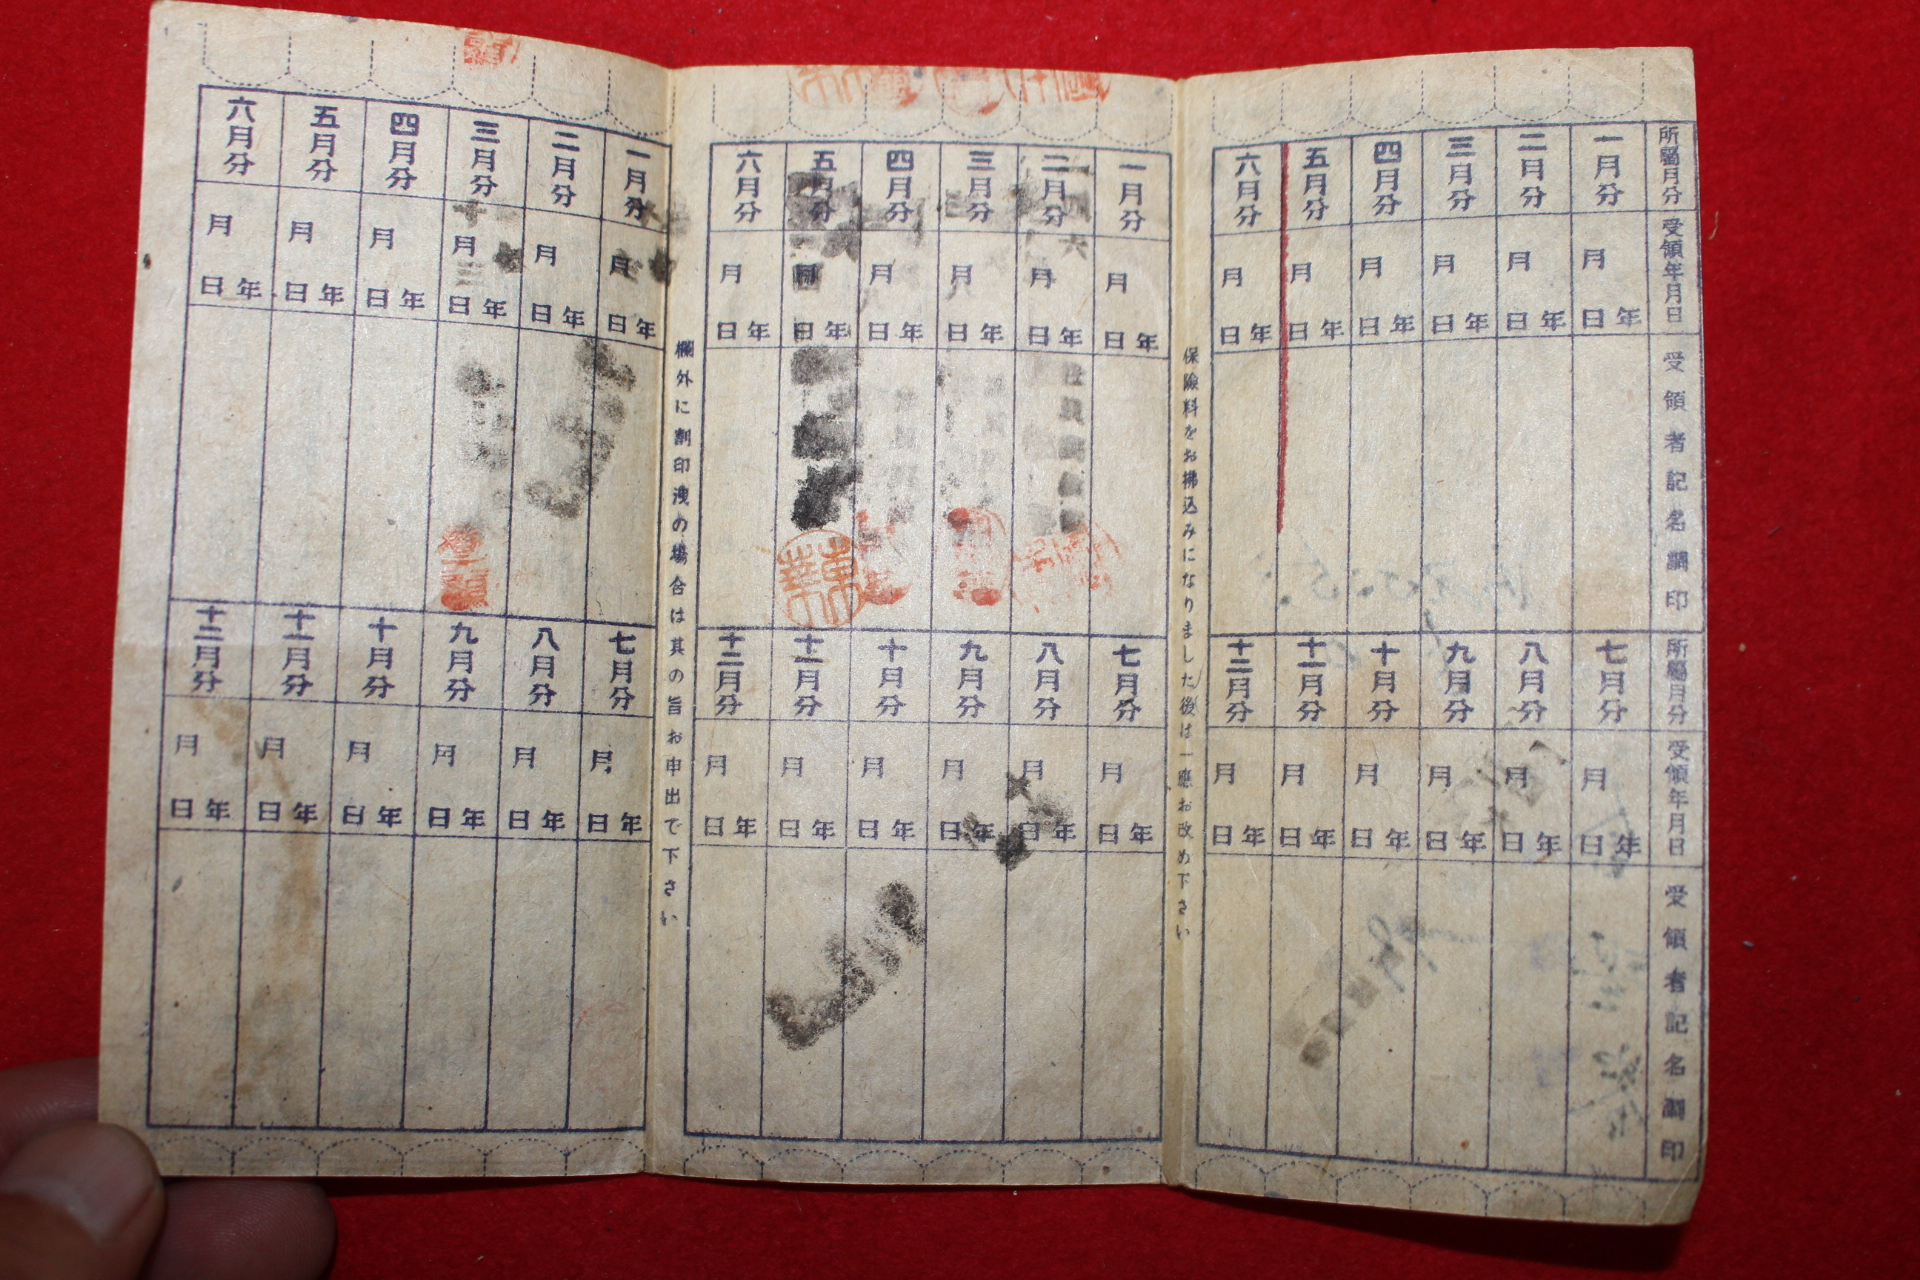 所屬月分
受領年月日
受領者記名調印
一月分
月
年
日
二月分
月
年
日
三月分
月
年
日
四月分
月
年
日
五月分
月
年
日
六月分
月
年
日
所屬月分
受領年月日
受領者記名調印
七月分
月
年
日
八月分
月
年
日
九月分
月
年
日
十月分
月
年
日
十一月分
月
年
日
十二月分
月
年
日
保險料をお拂込みになりました後は一應お改め下さい
一月分
月
年
日
二月分
月
年
日
三月分
月
年
日
四月分
月
年
日
五月分
月
年
日
六月分
月
年
日
七月分
月
年
日
八月分
月
年
日
九月分
月
年
日
十月分
月
年
日
十一月分
月
年
日
十二月分
月
年
日
欄外に割印洩の場合は其の旨お申出で下さい
一月分
月
年
日
二月分
月
年
日
三月分
月
年
日
四月分
月
年
日
五月分
月
年
日
六月分
月
年
日
七月分
月
年
日
八月分
月
年
日
九月分
月
年
日
十月分
月
年
日
十一月分
月
年
日
十二月分
月
年
日